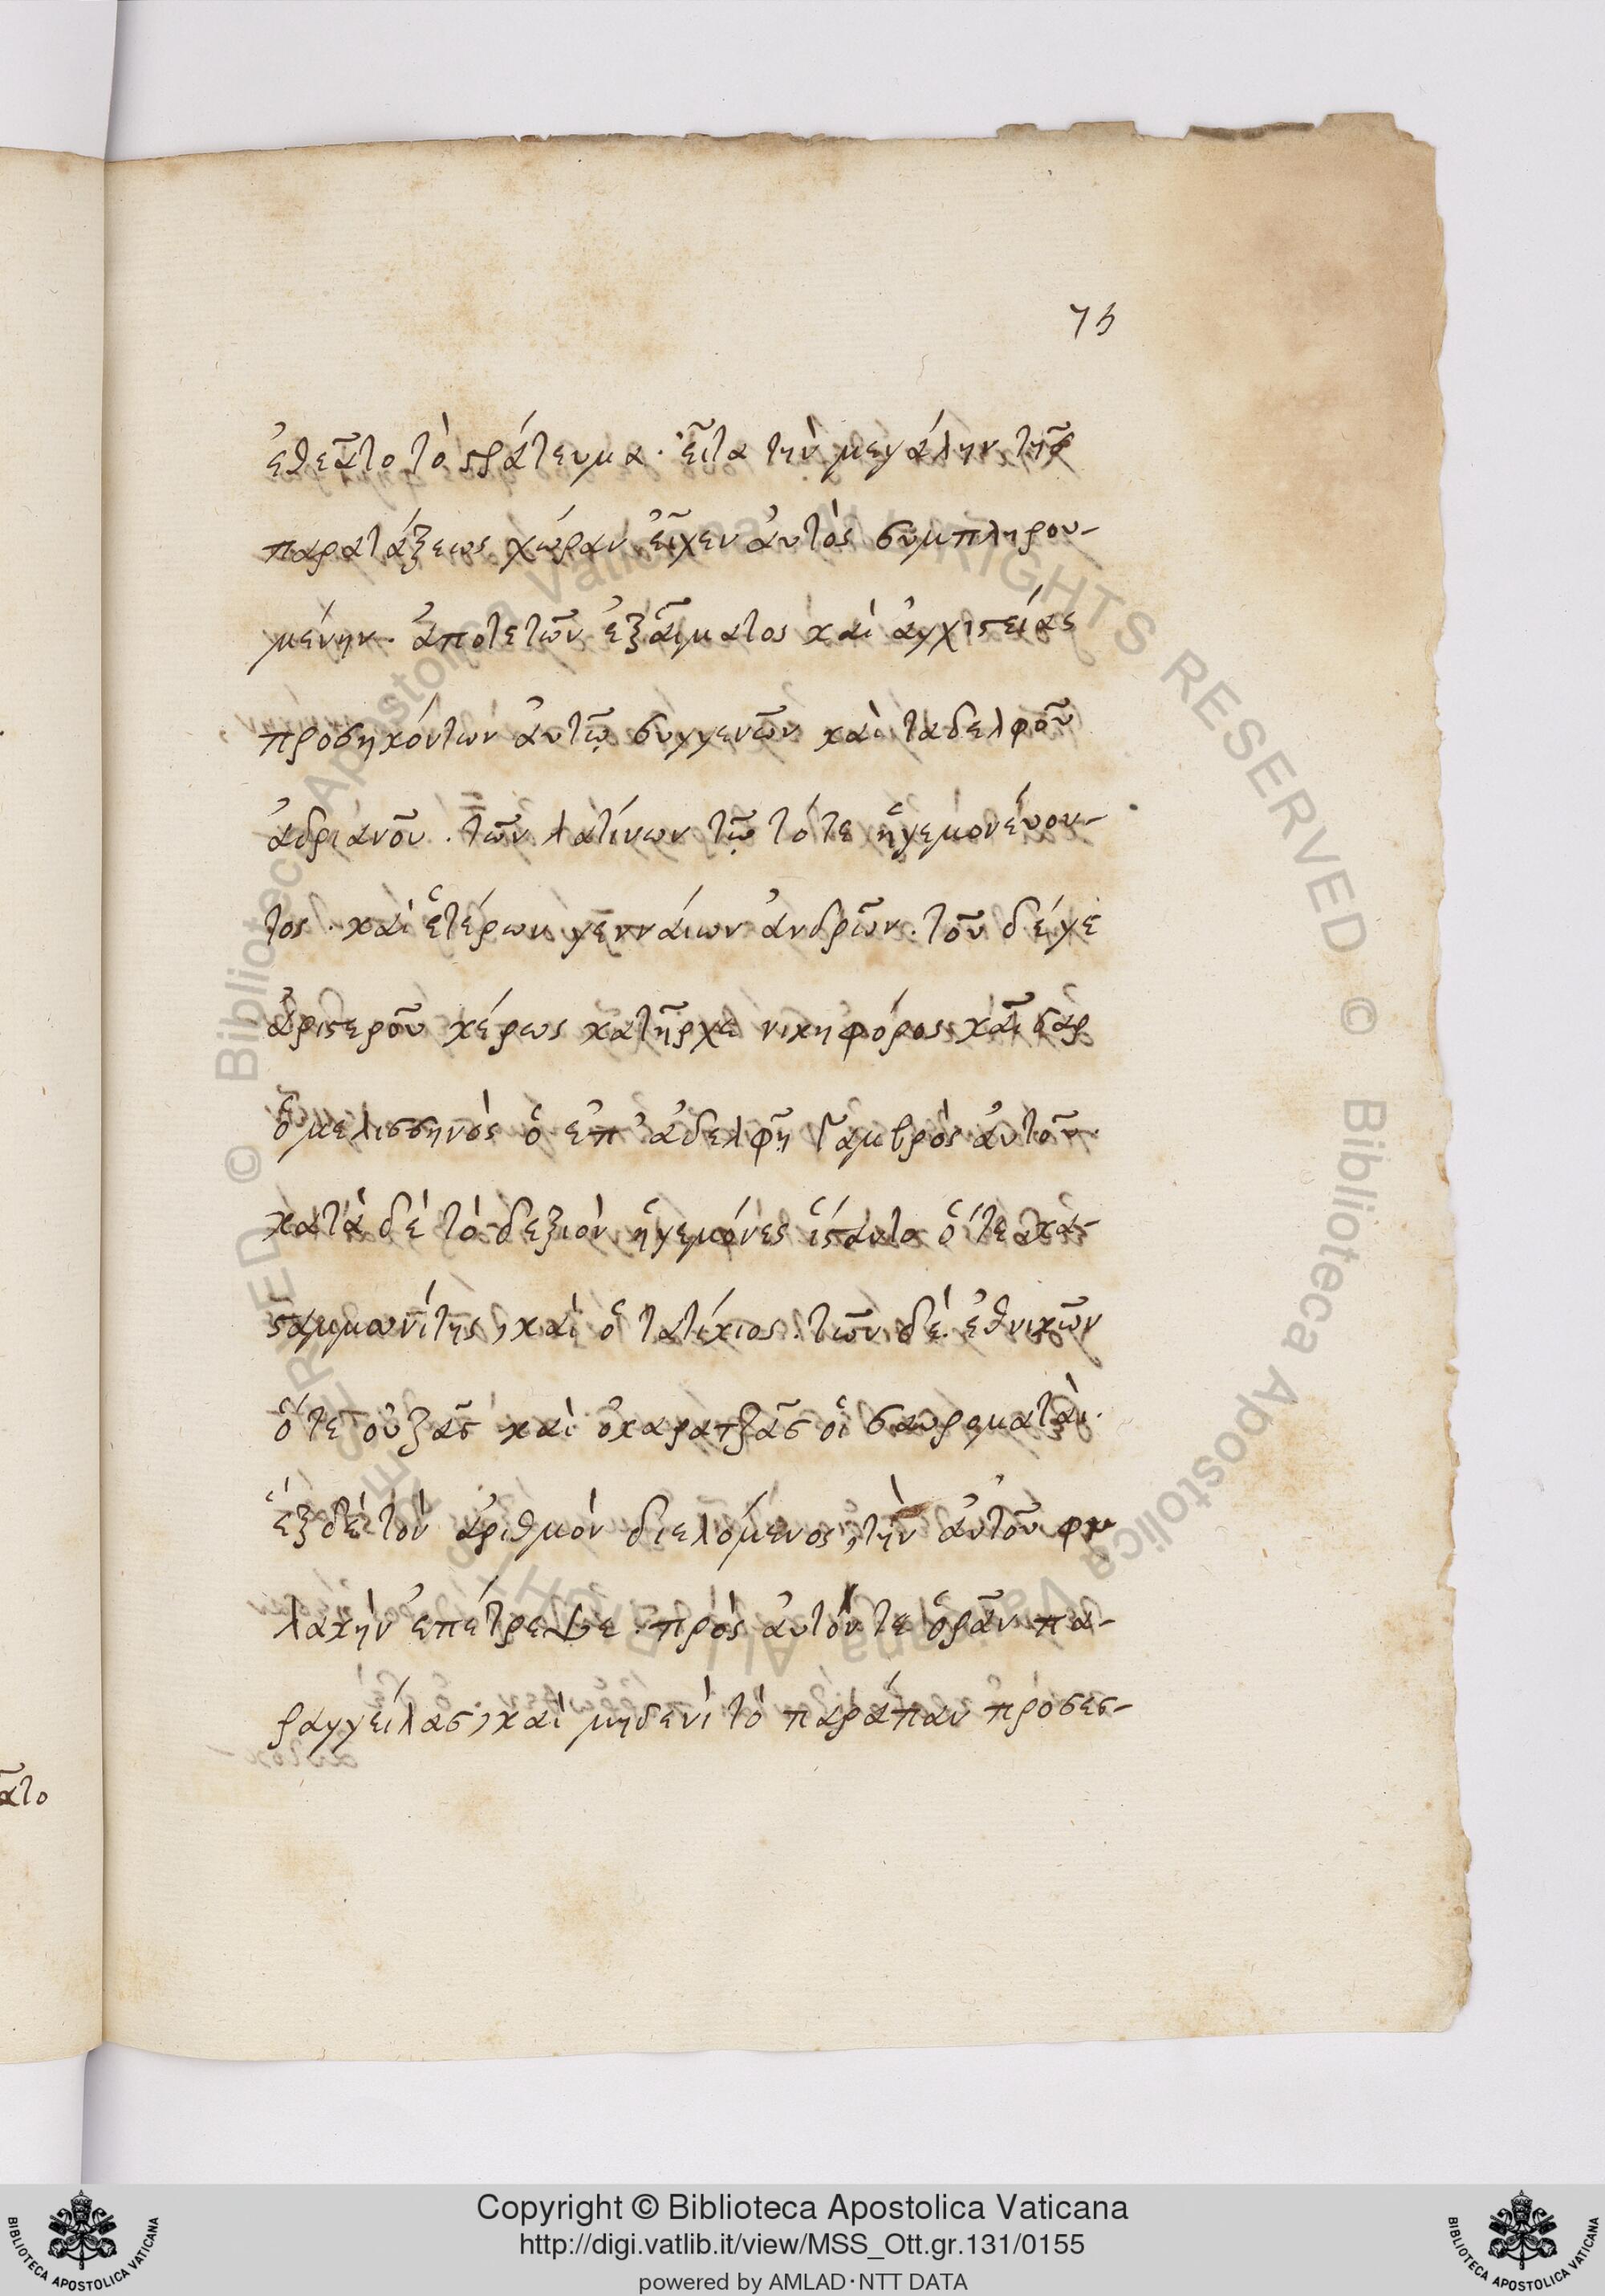 75
ἐθεᾶτο τὸ στράτευμα. εἶτα τὴν μεγάλην τῆς
παρατάξεως χώραν εἶχεν ἀυτὸς συμπληρου-
μένην. ἀποτετῶν ἐξᾶιματος καὶ ἀγχιστείας
προσηκόντων ἀυτῶ συγγενῶν καὶ ταδελφοῦ
ἀδριανοῦ. τῶν λατίνων τῶ τότε ἡγεμονέυον-
τος. καὶ ἑτέρων γενναίων ἀνδρῶν. τοῦ δέγε
ἀριστεροῦ κέρως κατῆρχε νικηφόρος καῖσαρ
ὁ μελισσηνὸς ὁ ἐπ' ἀδελφῆ γαμβρὸς ἀυτοῦ.
κατὰ δὲ τὸ δεξιὸν ἡγεμόνες ἵσταντο ὅτε κα-
σταμμονίτης, καὶ ὁ τατίκιος. τῶν δὲ ἐθνικῶν
ὅ τε οὐζᾶσ καὶ ὁκαρατζᾶσ οἱ σαυροματὰι.
ἑξ δὲ τὸν ἀριθμὸν διελόμενος, τὴν ἀυτοῦ φυ
λακὴν ἐπέτρεψε. πρὸς ἀυτόν τε ὁρᾶν πα-
ραγγείλασ, καὶ μηδενὶ τὸ παράπαν πρόσεσ-
ᾶτο
Copyright © Biblioteca Apostolica Vaticana
http://digi.vatlib.it/view/MSS_Ott.gr.131/0155
powered by AMLAD·NTT DATA
BIBLIOTECA APOSTOLICA VATICANA
BIBLIOTECA APOSTOLICA VATICANA
© Biblioteca Apostolica Vaticana ALL RIGHTS RESERVED
© Biblioteca Apostolica Vaticana ALL RIGHTS RESERVED